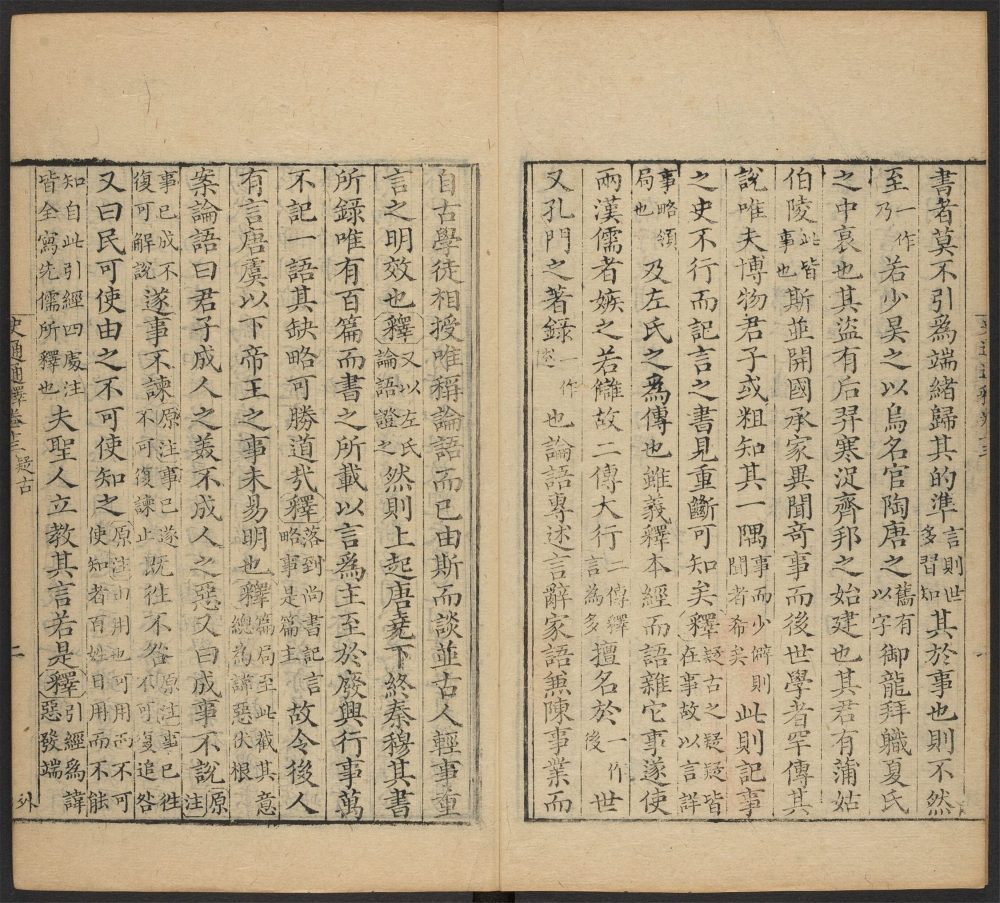 書者莫不引爲端緒歸其的準言則世多習知其於事也則不然
至一作乃若少昊之以鳥名官陶唐之舊有以字御龍拜職夏氏
之中衰也其盜有后羿寒浞齊邦之始建也其君有蒲姑
伯陵此皆事也斯並開國承家異聞奇事而後世學者罕傳其
說唯夫博物君子或粗知其一隅事而少僻則聞者希矣此則記事
之史不行而記言之書見重斷可知矣釋疑古之疑疑皆在事故以言詳
事略領局也及左氏之爲傳也雖義釋本經而語雜它事遂使
兩漢儒者嫉之若讎故二傳大行二傳釋言為多擅名於一作後世
又孔門之著錄一作述也論語專述言辭家語兼陳事業而
自古學徒相授唯稱論語而已由斯而談並古人輕事重
言之明效也釋又以左氏論語證之然則上起唐堯下終秦穆其書
所錄唯有百篇而書之所載以言爲主至於廢興行事萬
不記一語其缺略可勝道哉釋落到尚書記言略事是篇主故令後人
有言唐虞以下帝王之事未易明也釋篇局至此截其意總為諱惡伏根
案論語曰君子成人之美不成人之惡又曰成事不說原注
事已成不復可解說遂事不諫原注事已遂不可復諫止既往不咎原注事已往不可復追咎
又曰民可使由之不可使知之原注由用也可用而不可使知者百姓日用而不能
知自此引經四處注皆全寫先儒所釋也夫聖人立教其言若是釋引經為諱惡發端
史通通釋卷十三疑古
二
外